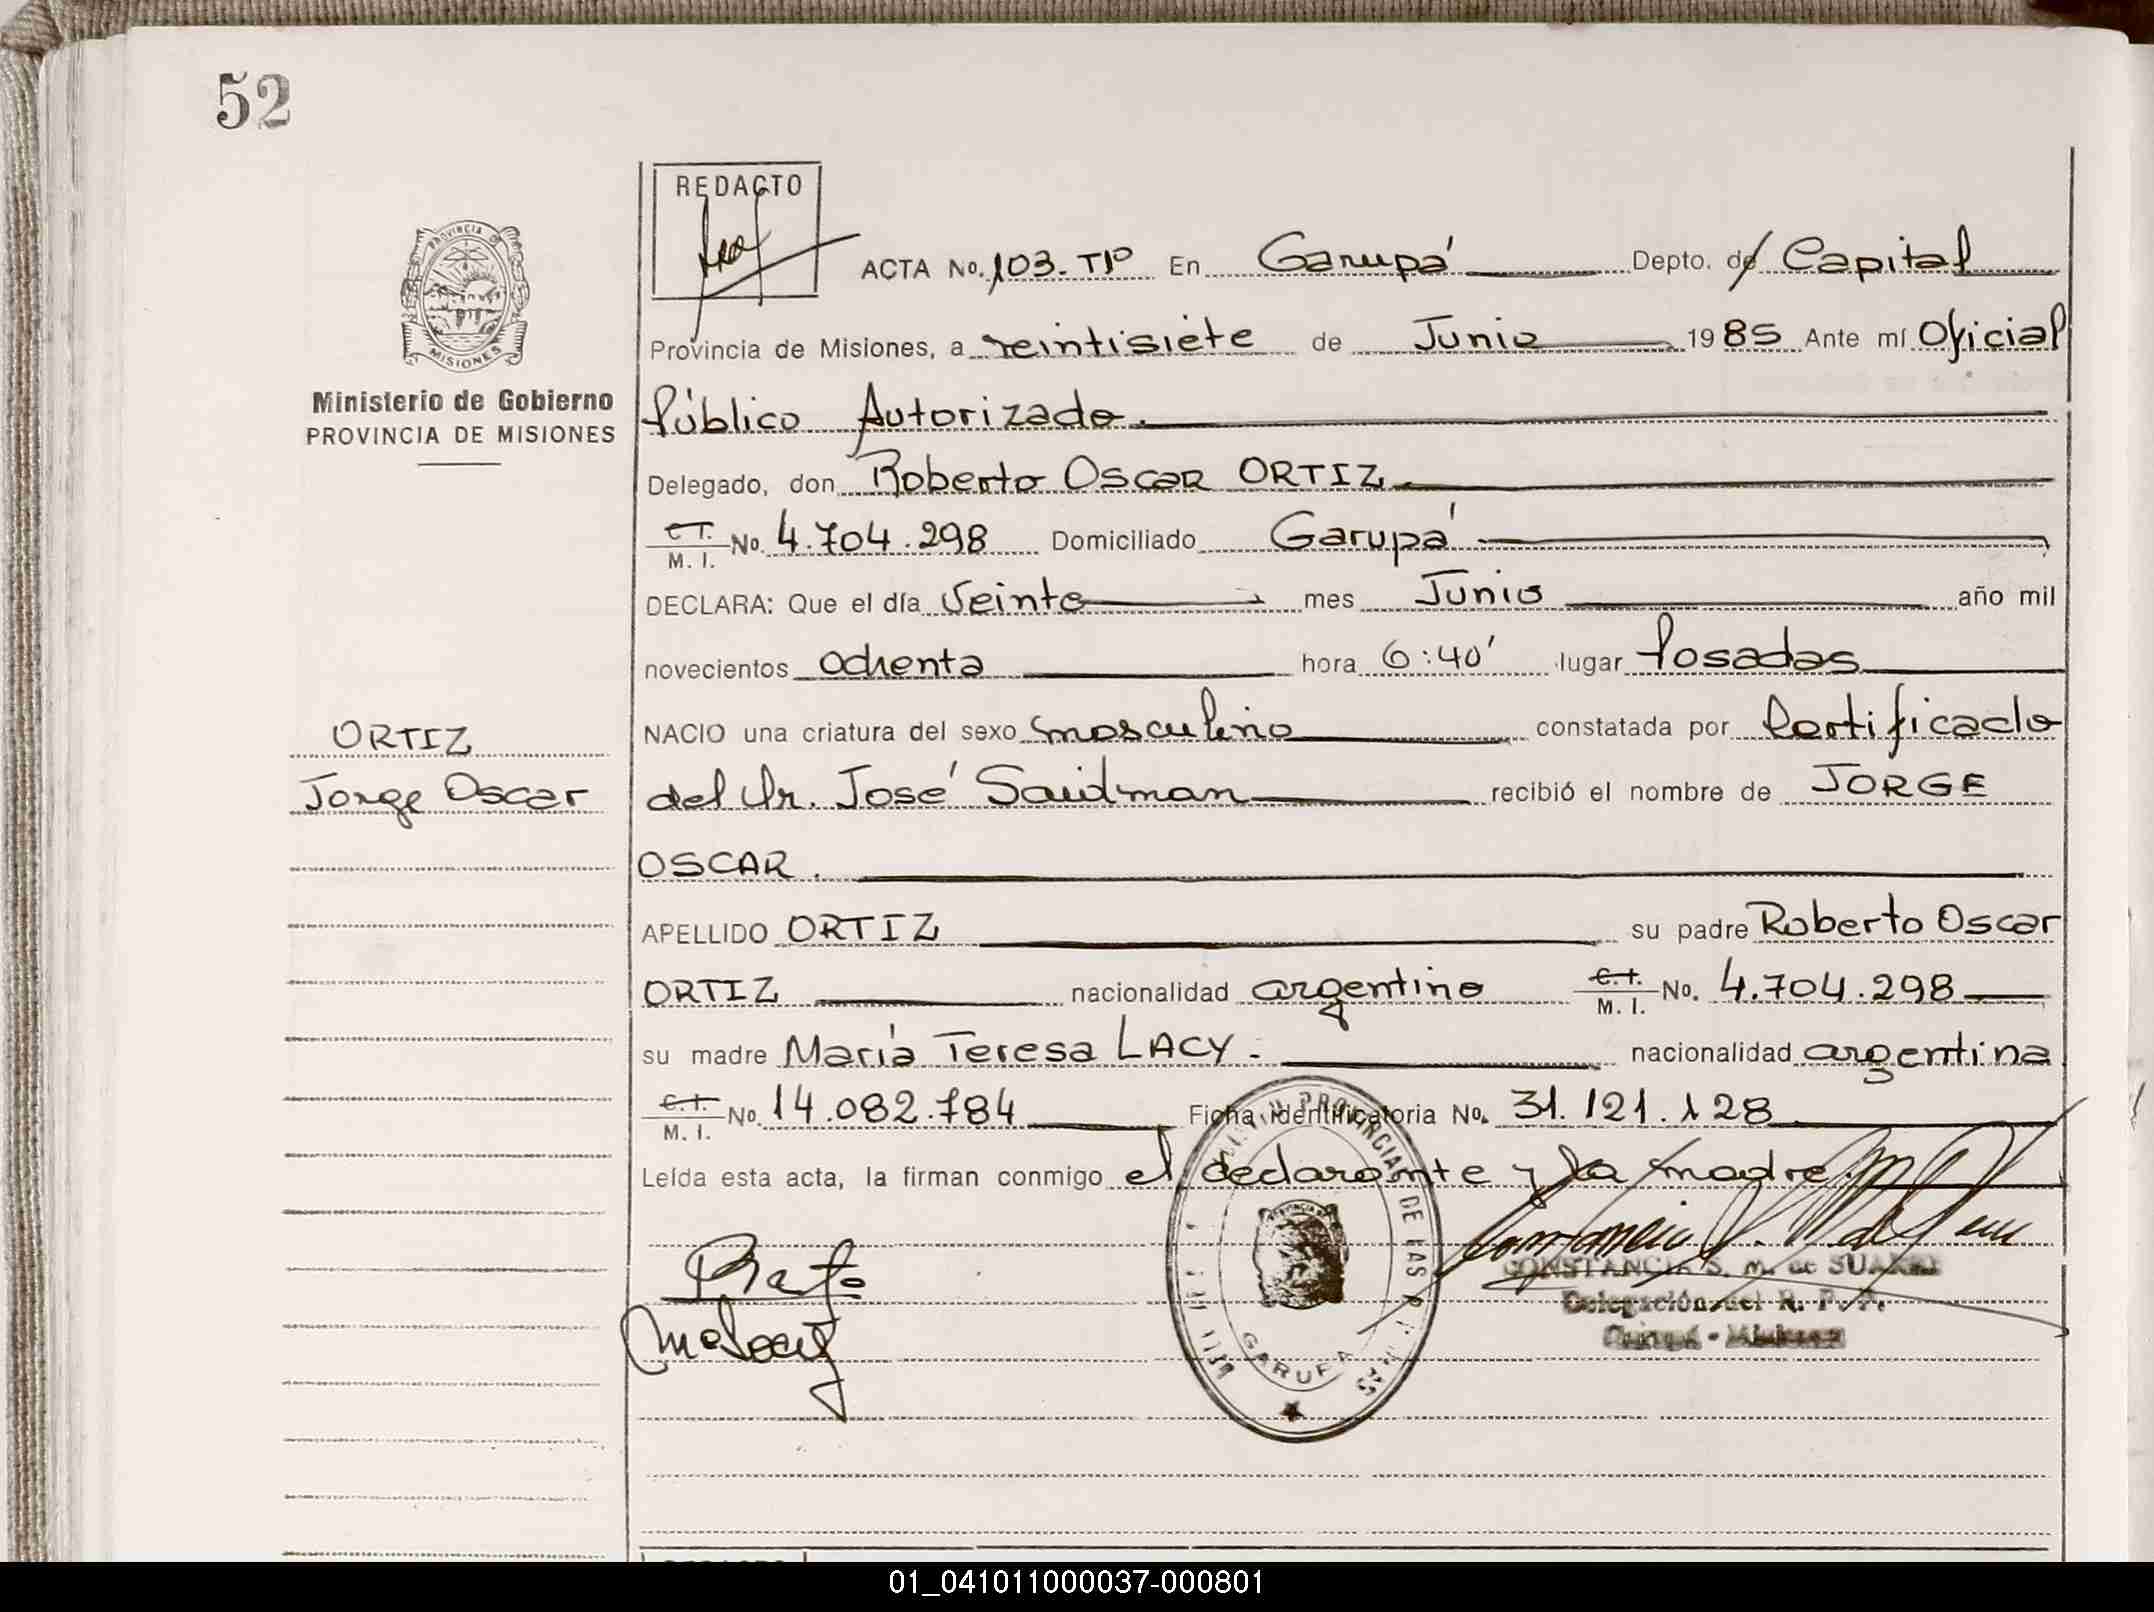 52
REDACTO
PROVINCIA D
MISIONES
Ministerio de Gobierno
PROVINCIA DE MISIONES
ACTA No. 103. Tº En Garupá Depto. de Capital
Provincia de Misiones, a veintisiete de Junio 1985 Ante mí Oficial
Público Autorizado.
Delegado, don Roberto Oscar ORTIZ
C.I. M. I. No. 4.704.298 Domiciliado Garupá
DECLARA: Que el día Veinte mes Junio año mil
novecientos ochenta hora 6:40' lugar Posadas
NACIO una criatura del sexo masculino constatada por Certificado
del Dr. José Saidman recibió el nombre de JORGE
OSCAR.
APELLIDO ORTIZ su padre Roberto Oscar
ORTIZ nacionalidad argentino C.I. M. I. No. 4.704.298
su madre María Teresa LACY. nacionalidad argentina
C.I. M. I. No. 14.082.784 Ficha identificatoria No. 31.121.128
Leída esta acta, la firman conmigo el declarante y la madre.
ORTIZ
Jorge Oscar
PROVINCIAL DE LAS
GARUPA
CONSTANCIA S. M. de SUAREZ
Delegación del R. P. P.
Garupá - Misiones
01_041011000037-000801